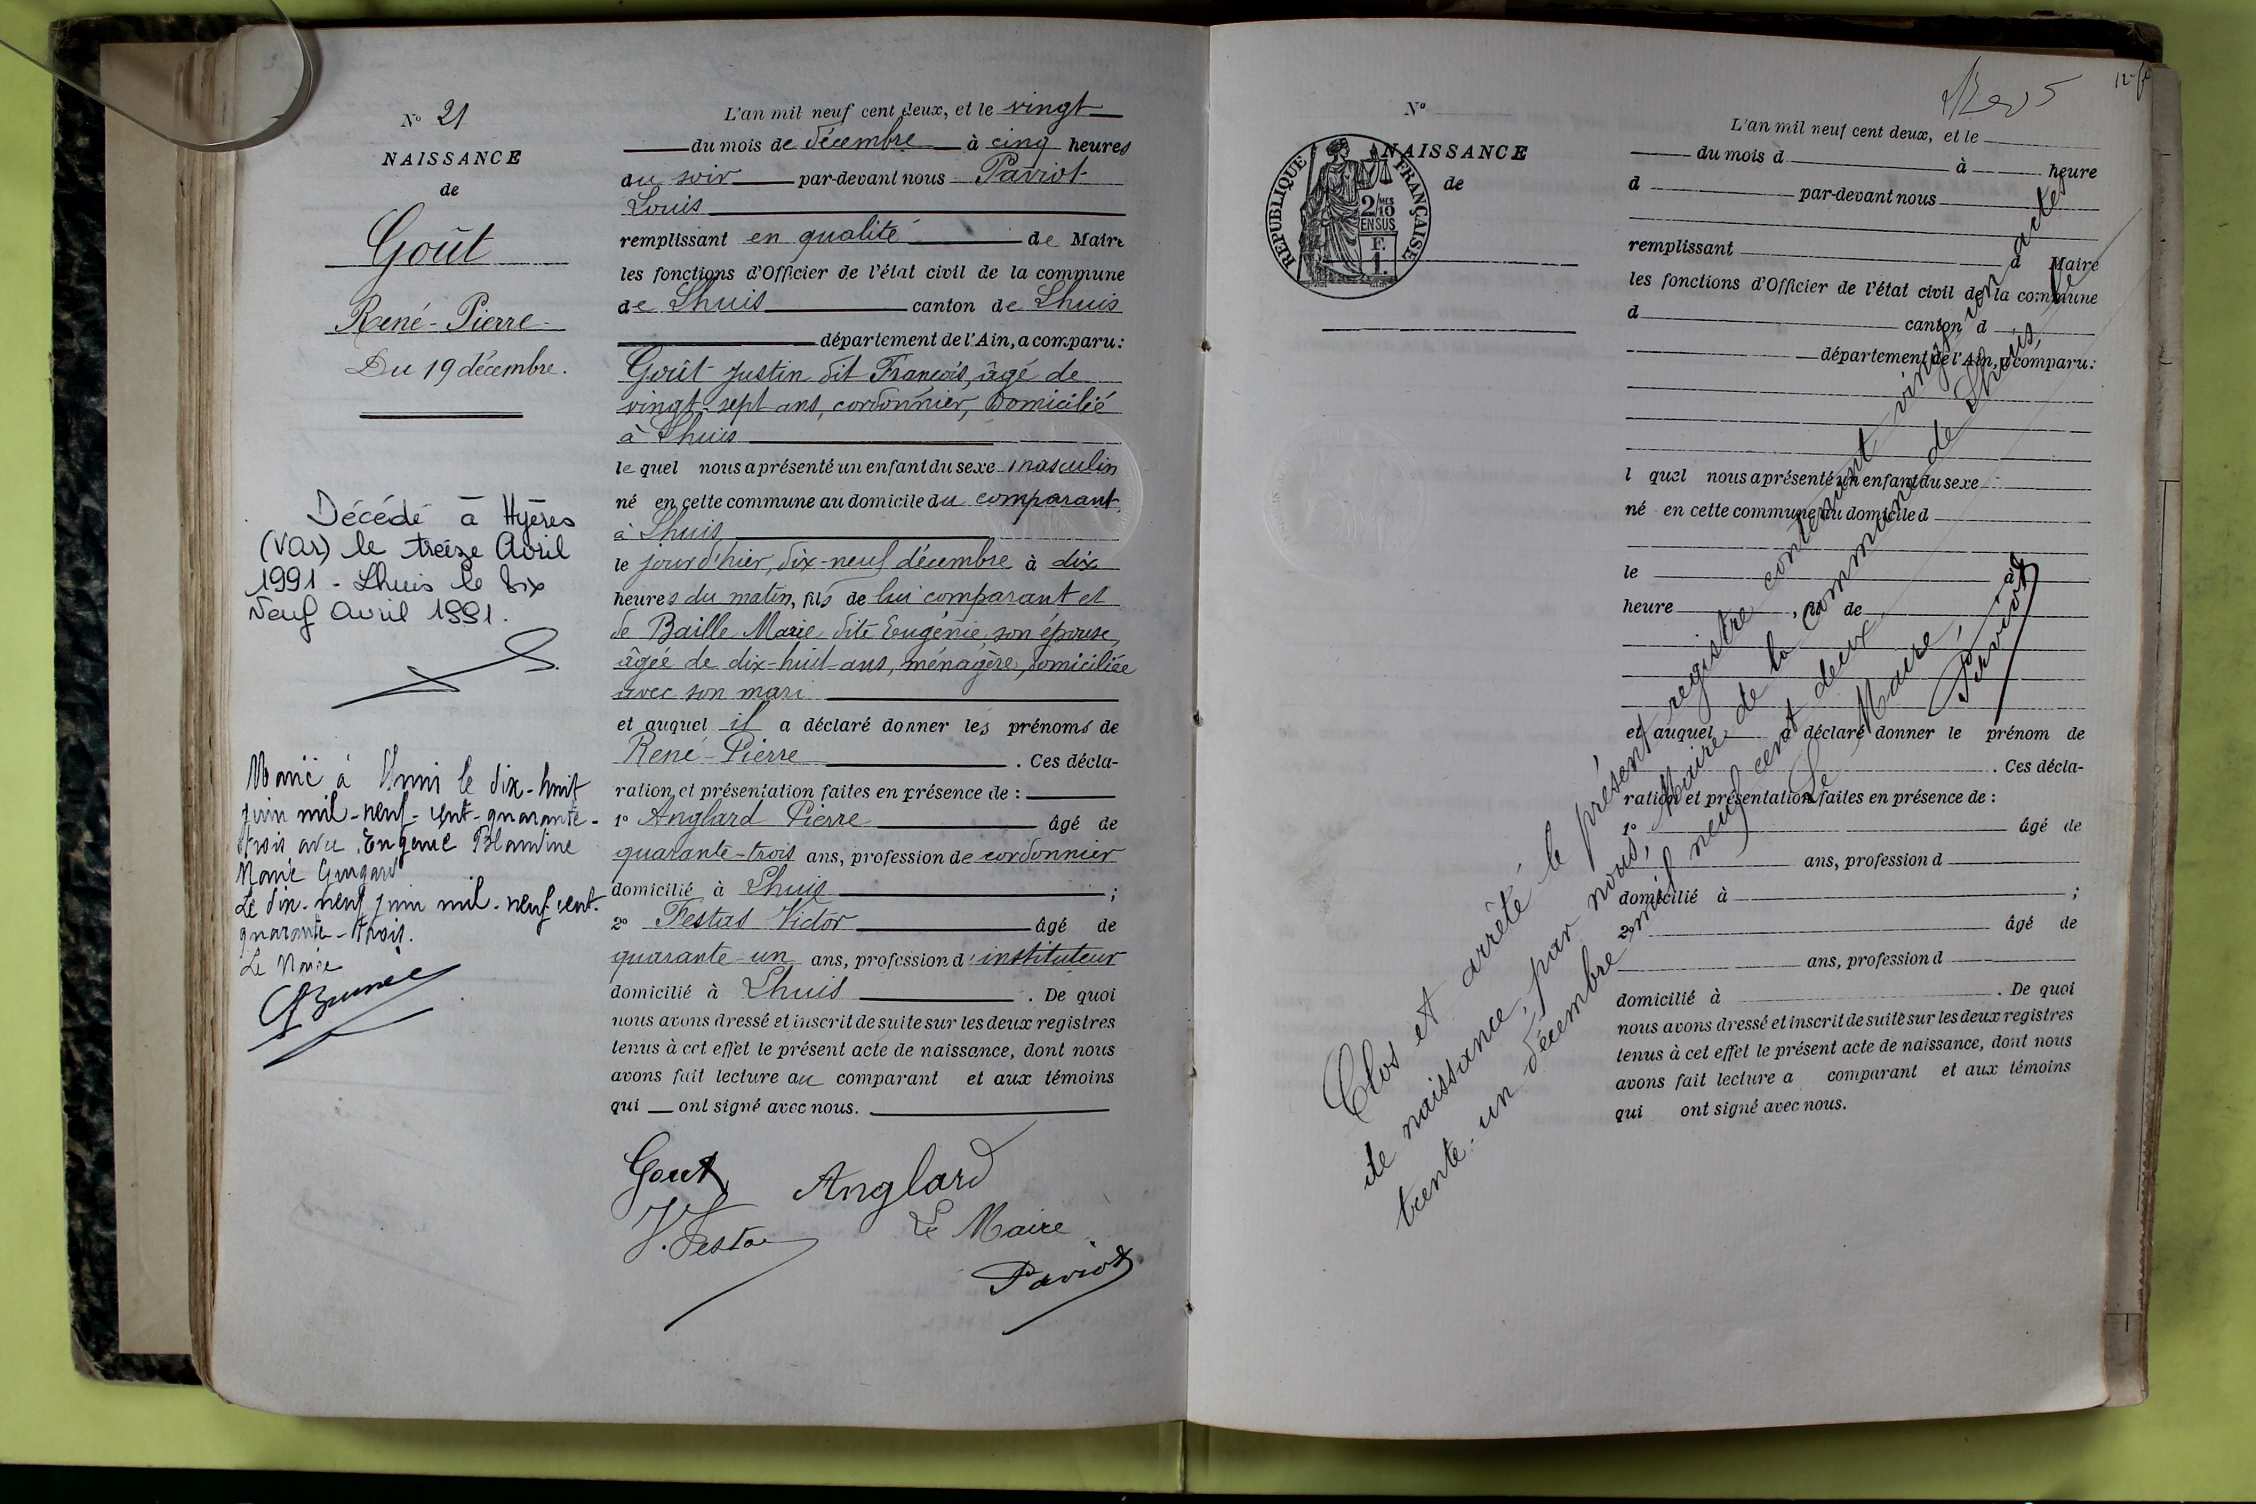 N° 21
NAISSANCE
de
Goût
René-Pierre
Du 19 décembre.
Décédé à Hyères
(Var) le treize Avril
1991 - Lhuis le Dix
Neuf Avril 1991.
Marié à Lhuis le dix-huit
juin mil-neuf-cent-quarante-
trois avec Eugénie Blandine
Marie
Le dix-neuf juin mil-neuf cent-
quarante-trois.
Le Maire
L'an mil neuf cent deux, et le vingt
du mois de décembre à cinq heures
du soir par-devant nous Paviot
Louis
remplissant en qualité de Maire
les fonctions d'Officier de l'état civil de la commune
de Lhuis canton de Lhuis
département de l'Ain, a comparu:
Goût Justin dit François, âgé de
vingt-sept ans, cordonnier, domicilié
à Lhuis
lequel nous a présenté un enfant du sexe masculin
né en cette commune au domicile du comparant
à Lhuis
le jour d'hier, dix-neuf décembre à dix
heures du matin, fils de lui comparant et
de Baille Marie dite Eugénie son épouse,
âgée de dix-huit-ans, ménagère, domiciliée
avec son mari
et auquel il a déclaré donner les prénoms de
René-Pierre . Ces décla-
ration et présentation faites en présence de :
1° Anglard Pierre âgé de
quarante-trois ans, profession de cordonnier
domicilié à Lhuis ;
2° Festas Victor âgé de
quarante-un ans, profession d'instituteur
domicilié à Lhuis . De quoi
nous avons dressé et inscrit de suite sur les deux registres
tenus à cet effet le présent acte de naissance, dont nous
avons fait lecture au comparant et aux témoins
qui ont signé avec nous.
Gout Anglard
V. Festas Le Maire
Paviot
N°
NAISSANCE
de
REPUBLIQUE FRANÇAISE
2/10
MES
EN SUS
F.
1.
L'an mil neuf cent deux, et le
du mois d à heure
d par-devant nous
remplissant d Maire
les fonctions d'Officier de l'état civil de la commune
d canton d
département de l'Ain, a comparu:
l quel nous a présenté un enfant du sexe
né en cette commune au domicile d
le à
heure , fil de
et auquel a déclaré donner le prénom de
. Ces décla-
ration et présentation faites en présence de :
1° âgé de
ans, profession d
domicilié à ;
2° âgé de
ans, profession d
domicilié à . De quoi
nous avons dressé et inscrit de suite sur les deux registres
tenus à cet effet le présent acte de naissance, dont nous
avons fait lecture a comparant et aux témoins
qui ont signé avec nous.
Clos et arrêté le présent registre contenant vingt-un actes
de naissance, par nous, Maire de la commune de Lhuis, le
trente-un décembre mil neuf cent deux
Le Maire,
Paviot